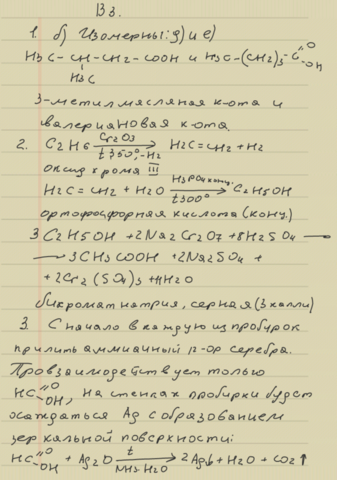 В 3.
1. б) Изомеры: д) и е)
H3C – CH – CH2 – COOH и H3C – (CH2)3 – C =O – OH
H3C
3-метилмасляная к-ота и
валериановая к-ота.
2. C2H6 Cr2O3 t 350°, -H2 H2C=CH2 + H2
оксид хрома III
H2C = CH2 + H2O H3PO4 конц. t 300° C2H5OH
ортофосфорная кислота (конц.)
3 C2H5OH + 2Na2Cr2O7 + 8H2SO4 —
— 3CH3COOH + 2Na2SO4 +
+ 2Cr2(SO4)3 + 11H2O
бихромат натрия, серная (3 капли)
3. Сначало в каждую из пробирок
прилить аммиачный р-ор серебра.
Провзаимодействует только
HC =O OH, на стенках пробирки будет
осаждаться Ag с образованием
зеркальной поверхности:
HC =O OH + Ag2O t NH3·H2O 2Ag↓ + H2O + CO2↑